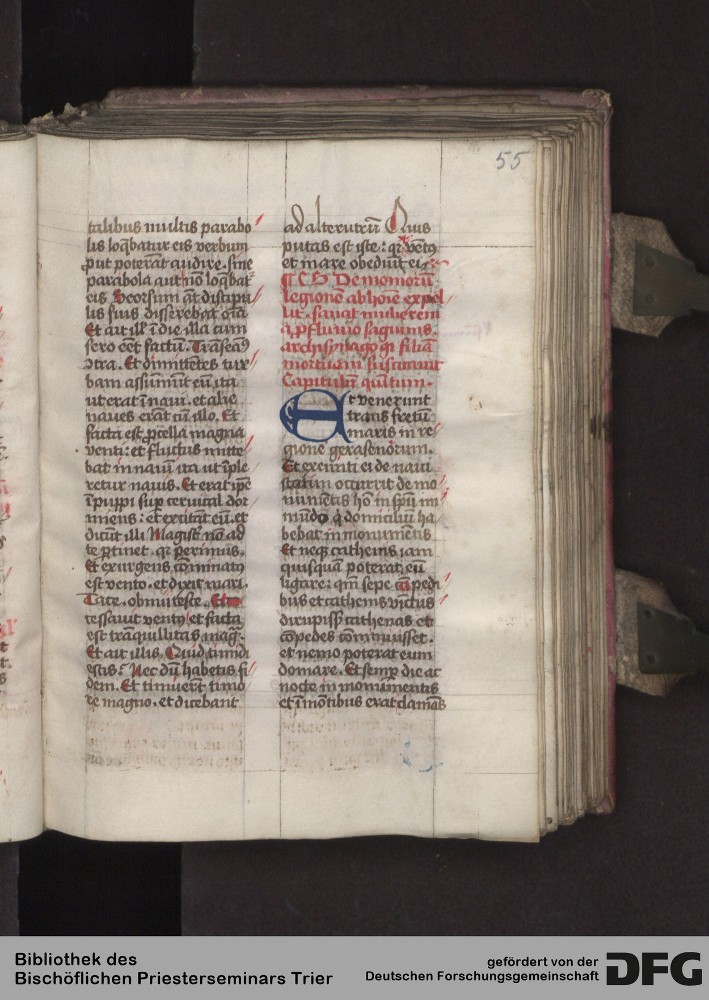 55
talibus multis parabo
lis loq̄batur eis verbum
put poterāt audire. sine
parabola aut nō loq̄bat᷑
eis Deorsum āt discipu
lis suis disserebat oīa
Et ait ill̄ ī die illa cum
sero eēt factū. Trāseam᷒
ꝯtra. Et dimittētes tur
bam assumūt eū ita
ut erat ī navi. et alie
naves erāt cū illo. Et
facta est ꝓcella magna
venti: et fluctus mitte
bat in navū ita ut īple
retur navis. Et erat ip̄e
ī puppi sup cervical dor
miens: et excitāt eū. et
dicūt illi Magist̄ nō ad
te ꝑtinet. qꝛ ꝑerimus.
Et exurgens cōminatꝰ
est vento. et dixit mari.
Tace. obmutesce. Et
cessavit ventꝰ et facta
est trāquillitas mag̅.
Et ait illis. Quid timidi
estis: Nec dū habetis fi
dem. Et timuer̄t timo
re magno. et dicebant
ad alterutrū Quis
putas est iste: qꝛ ventꝰ
et mare obediūt ei
Demoniorū
legionē ab hoīe expel
lit. sanat mulierem
a ꝓfluvio sāguinis.
archisinagogi filiā
mortuam suscitavit
Capitulū quītum.
Et venerunt
trans fretū
maris in re
gionē gerasenorum.
Et exeunti ei de navi
statim occurrit de mo
numētis hō in sp̄u im
mūdo q̄ domiciliū ha
bebat in monumētis.
Et neqꝫ cathenis iam
quisquā poterat eū
ligare: qm̄ sepe cōpedi
bus et cathenis vīctus
dirupiss̄ cathenas et
cōpedes cōminuisset.
et nemo poterat eum
domare. Et semp die ac
nocte in monumētis
et ī mōtibus erat clamās
Bibliothek des
Bischöflichen Priesterseminars Trier
gefördert von der
Deutschen Forschungsgemeinschaft
DFG